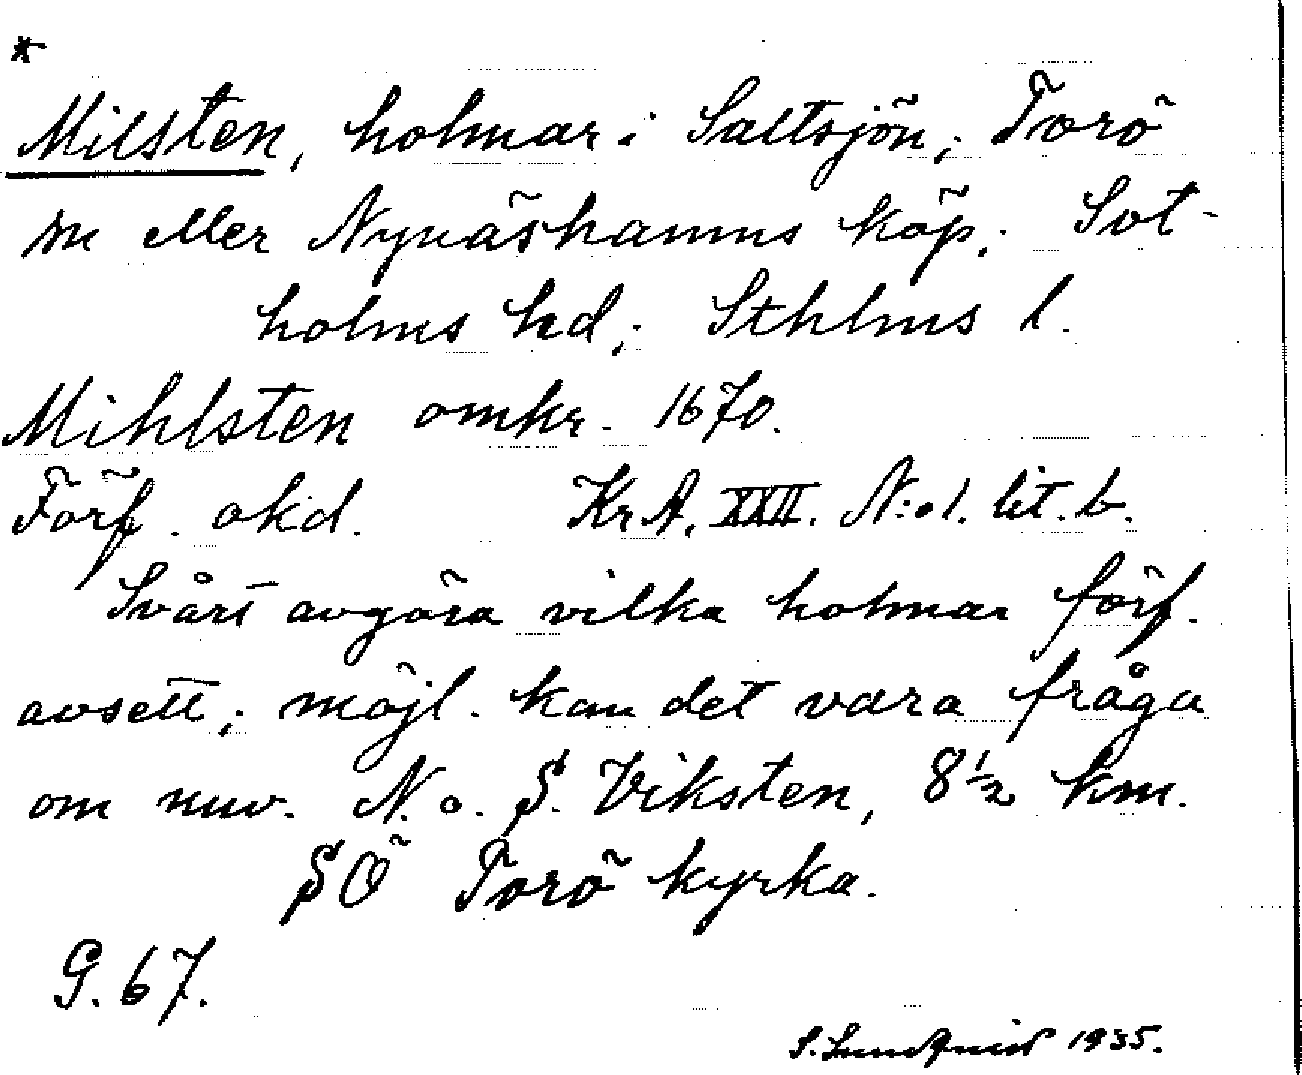 *
Milsten, holmar i Saltsjön; Torö
sn eller Nynäshamns köp; Sot-
holms hd; Sthlms l.
Mihlsten omkr. 1670.
Förf. okd. Kr A, XXII. N:o 1. lit. b.
Svårt avgöra vilka holmar förf.
avsett; möjl. kan det vara fråga
om nuv. N. o. S. Viksten, 8 1/2 km.
SÖ Torö kyrka.
G. 67.
S. Lundqvist 1935.